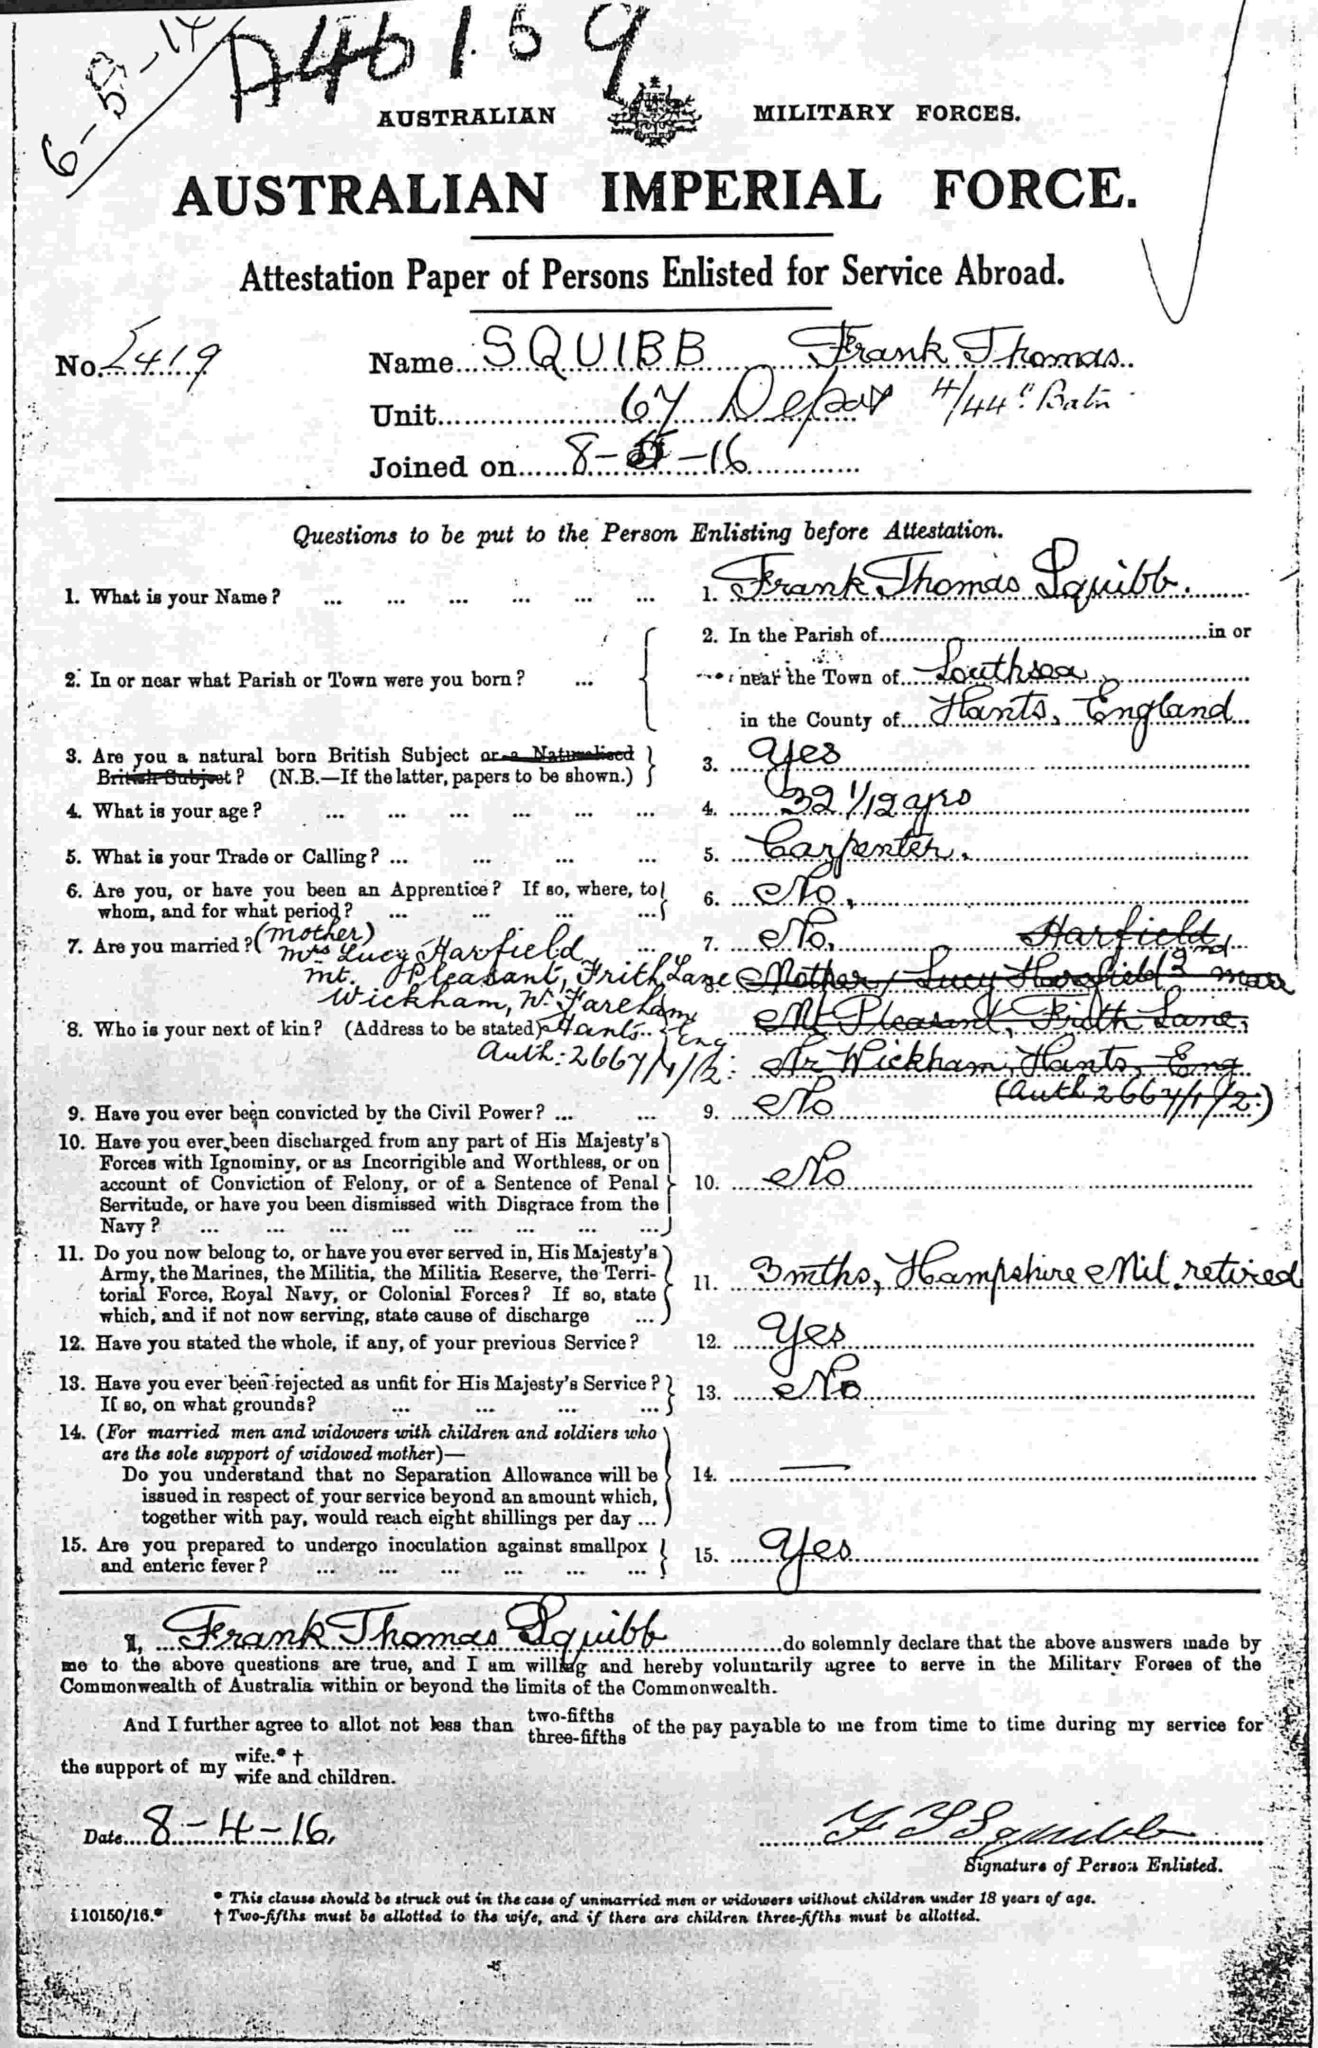 6-5-14
A46159
AUSTRALIAN MILITARY FORCES.
AUSTRALIAN IMPERIAL FORCE.
Attestation Paper of Persons Enlisted for Service Abroad.
No. 2419 Name SQUIBB Frank Thomas.
Unit 67 Depot 4/44th Batn
Joined on 8- -16
Questions to be put to the Person Enlisting before Attestation.
1. What is your Name? ... ... ... ... ... ... 1. Frank Thomas Squibb.
2. In the Parish of in or
2. In or near what Parish or Town were you born? ... near the Town of Southsea
in the County of Hants, England
3. Are you a natural born British Subject or a Naturalised
British Subject? (N.B.—If the latter, papers to be shown.) 3. Yes
4. What is your age? ... ... ... ... ... ... 4. 32 1/12 yrs
5. What is your Trade or Calling? ... ... ... ... 5. Carpenter.
6. Are you, or have you been an Apprentice? If so, where, to
whom, and for what period? ... ... ... ... 6. No.
(mother)
7. Are you married? Mrs Lucy Harfield ... 7. No. Harfield
Mt. Pleasant, Frith Lane 8. Mother, Lucy Harfield 2nd mar
Wickham, Nr. Fareham Mt Pleasant, Frith Lane,
8. Who is your next of kin? (Address to be stated) Hants. Eng
Auth: 2667/1/12: Nr Wickham, Hants, Eng
(Auth 2667/1/12:)
9. Have you ever been convicted by the Civil Power? ... ... 9. No
10. Have you ever been discharged from any part of His Majesty's
Forces with Ignominy, or as Incorrigible and Worthless, or on
account of Conviction of Felony, or of a Sentence of Penal 10. No
Servitude, or have you been dismissed with Disgrace from the
Navy? ... ... ... ... ... ... ... ...
11. Do you now belong to, or have you ever served in, His Majesty's
Army, the Marines, the Militia, the Militia Reserve, the Terri-
torial Force, Royal Navy, or Colonial Forces? If so, state 11. 3 mths, Hampshire Mil. retired
which, and if not now serving, state cause of discharge ...
12. Have you stated the whole, if any, of your previous Service? 12. Yes
13. Have you ever been rejected as unfit for His Majesty's Service?
If so, on what grounds? ... ... ... ... 13. No
14. (For married men and widowers with children and soldiers who
are the sole support of widowed mother)—
Do you understand that no Separation Allowance will be 14. —
issued in respect of your service beyond an amount which,
together with pay, would reach eight shillings per day ...
15. Are you prepared to undergo inoculation against smallpox
and enteric fever? ... ... ... ... ... ... 15. Yes
I, Frank Thomas Squibb do solemnly declare that the above answers made by
me to the above questions are true, and I am willing and hereby voluntarily agree to serve in the Military Forces of the
Commonwealth of Australia within or beyond the limits of the Commonwealth.
And I further agree to allot not less than two-fifths three-fifths of the pay payable to me from time to time during my service for
the support of my wife.* † wife and children.
Date 8-4-16. F T Squibb
Signature of Person Enlisted.
* This clause should be struck out in the case of unmarried men or widowers without children under 18 years of age.
† Two-fifths must be allotted to the wife, and if there are children three-fifths must be allotted.
10150/16.*